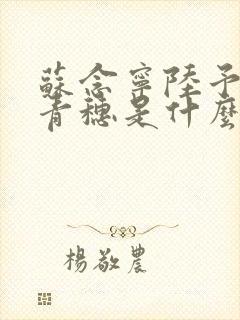 蘇念寧陸予
青穗是什麼
楊敬農